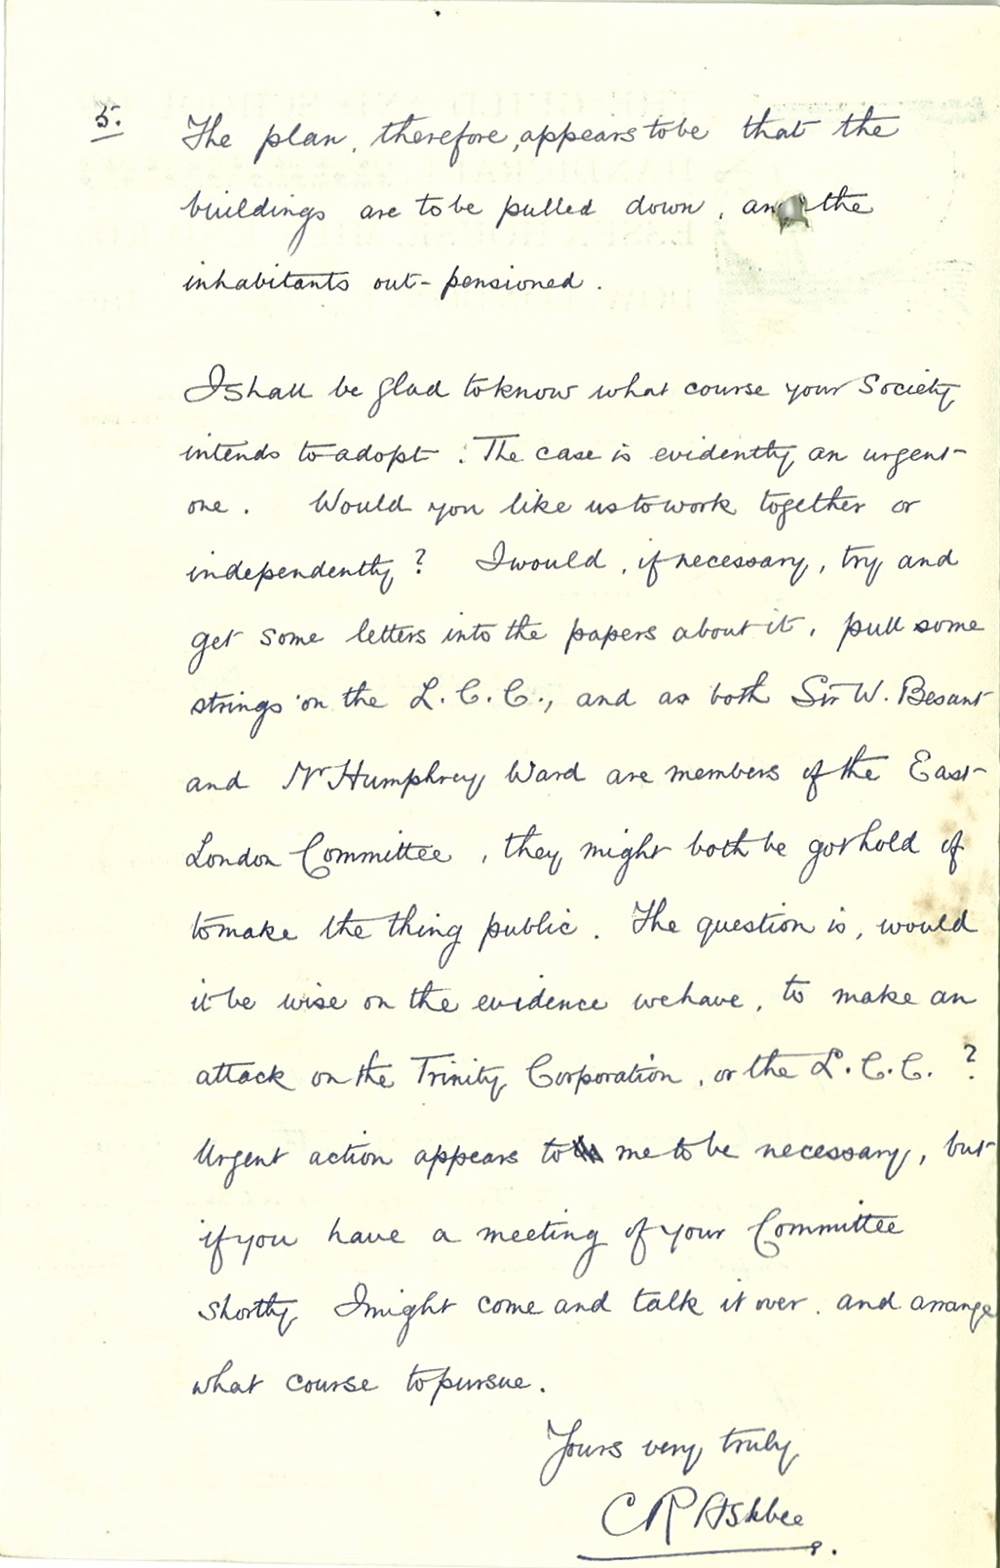 5.
The plan, therefore, appears to be that the
buildings are to be pulled down, an the
inhabitants out-pensioned.
I shall be glad to know what course your Society
intends to adopt. The case is evidently an urgent
one. Would you like us to work together or
independently? I would, if necessary, try and
get some letters into the papers about it, pull some
strings on the L.C.C., and as both Sir W. Besant
and Mr Humphrey Ward are members of the East
London Committee, they might both be got hold of
to make the thing public. The question is, would
it be wise on the evidence we have, to make an
attack on the Trinity Corporation, or the L.C.C.?
Urgent action appears to me to be necessary, but
if you have a meeting of your Committee
shortly I might come and talk it over. and arrange
what course to pursue.
Yours very truly
C R Ashbee